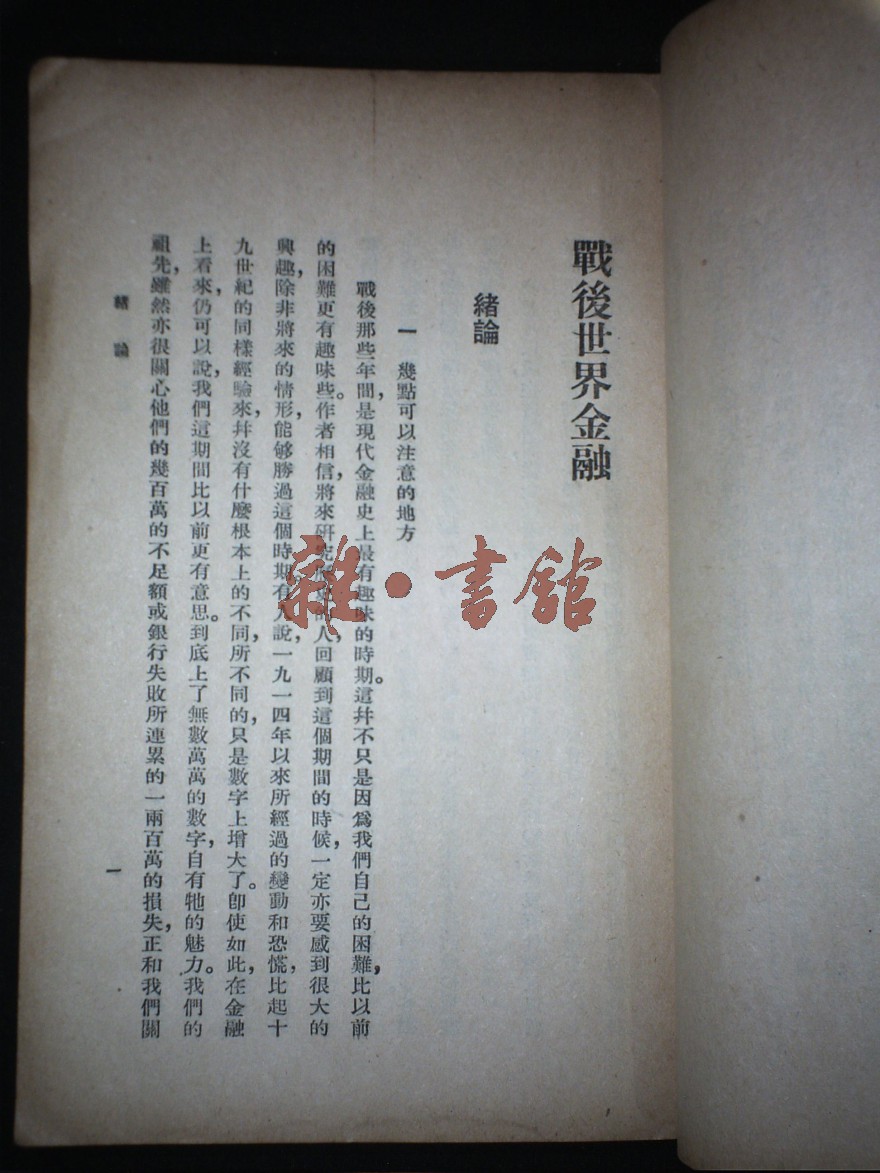 戰後世界金融
緒論
一　幾點可以注意的地方
戰後那些年間，是現代金融史上最有趣味的時期。這并不只是因爲我們自己的困難，比以前
的困難更有趣味些。作者相信，將來研究歷史的人，回顧到這個期間的時候，一定亦要感到很大的
興趣，除非將來的情形，能够勝過這個時期。有人說，一九一四年以來所經過的變動和恐慌，比起十
九世紀的同樣經驗來，并沒有什麼根本上的不同，所不同的，只是數字上增大了。卽使如此，在金融
上看來，仍可以說，我們這期間比以前更有意思。到底上了無數萬萬的數字，自有牠的魅力。我們的
祖先，雖然亦很關心他們的幾百萬的不足額或銀行失敗所連累的一兩百萬的損失，正和我們關
緒論
一
雜·書館